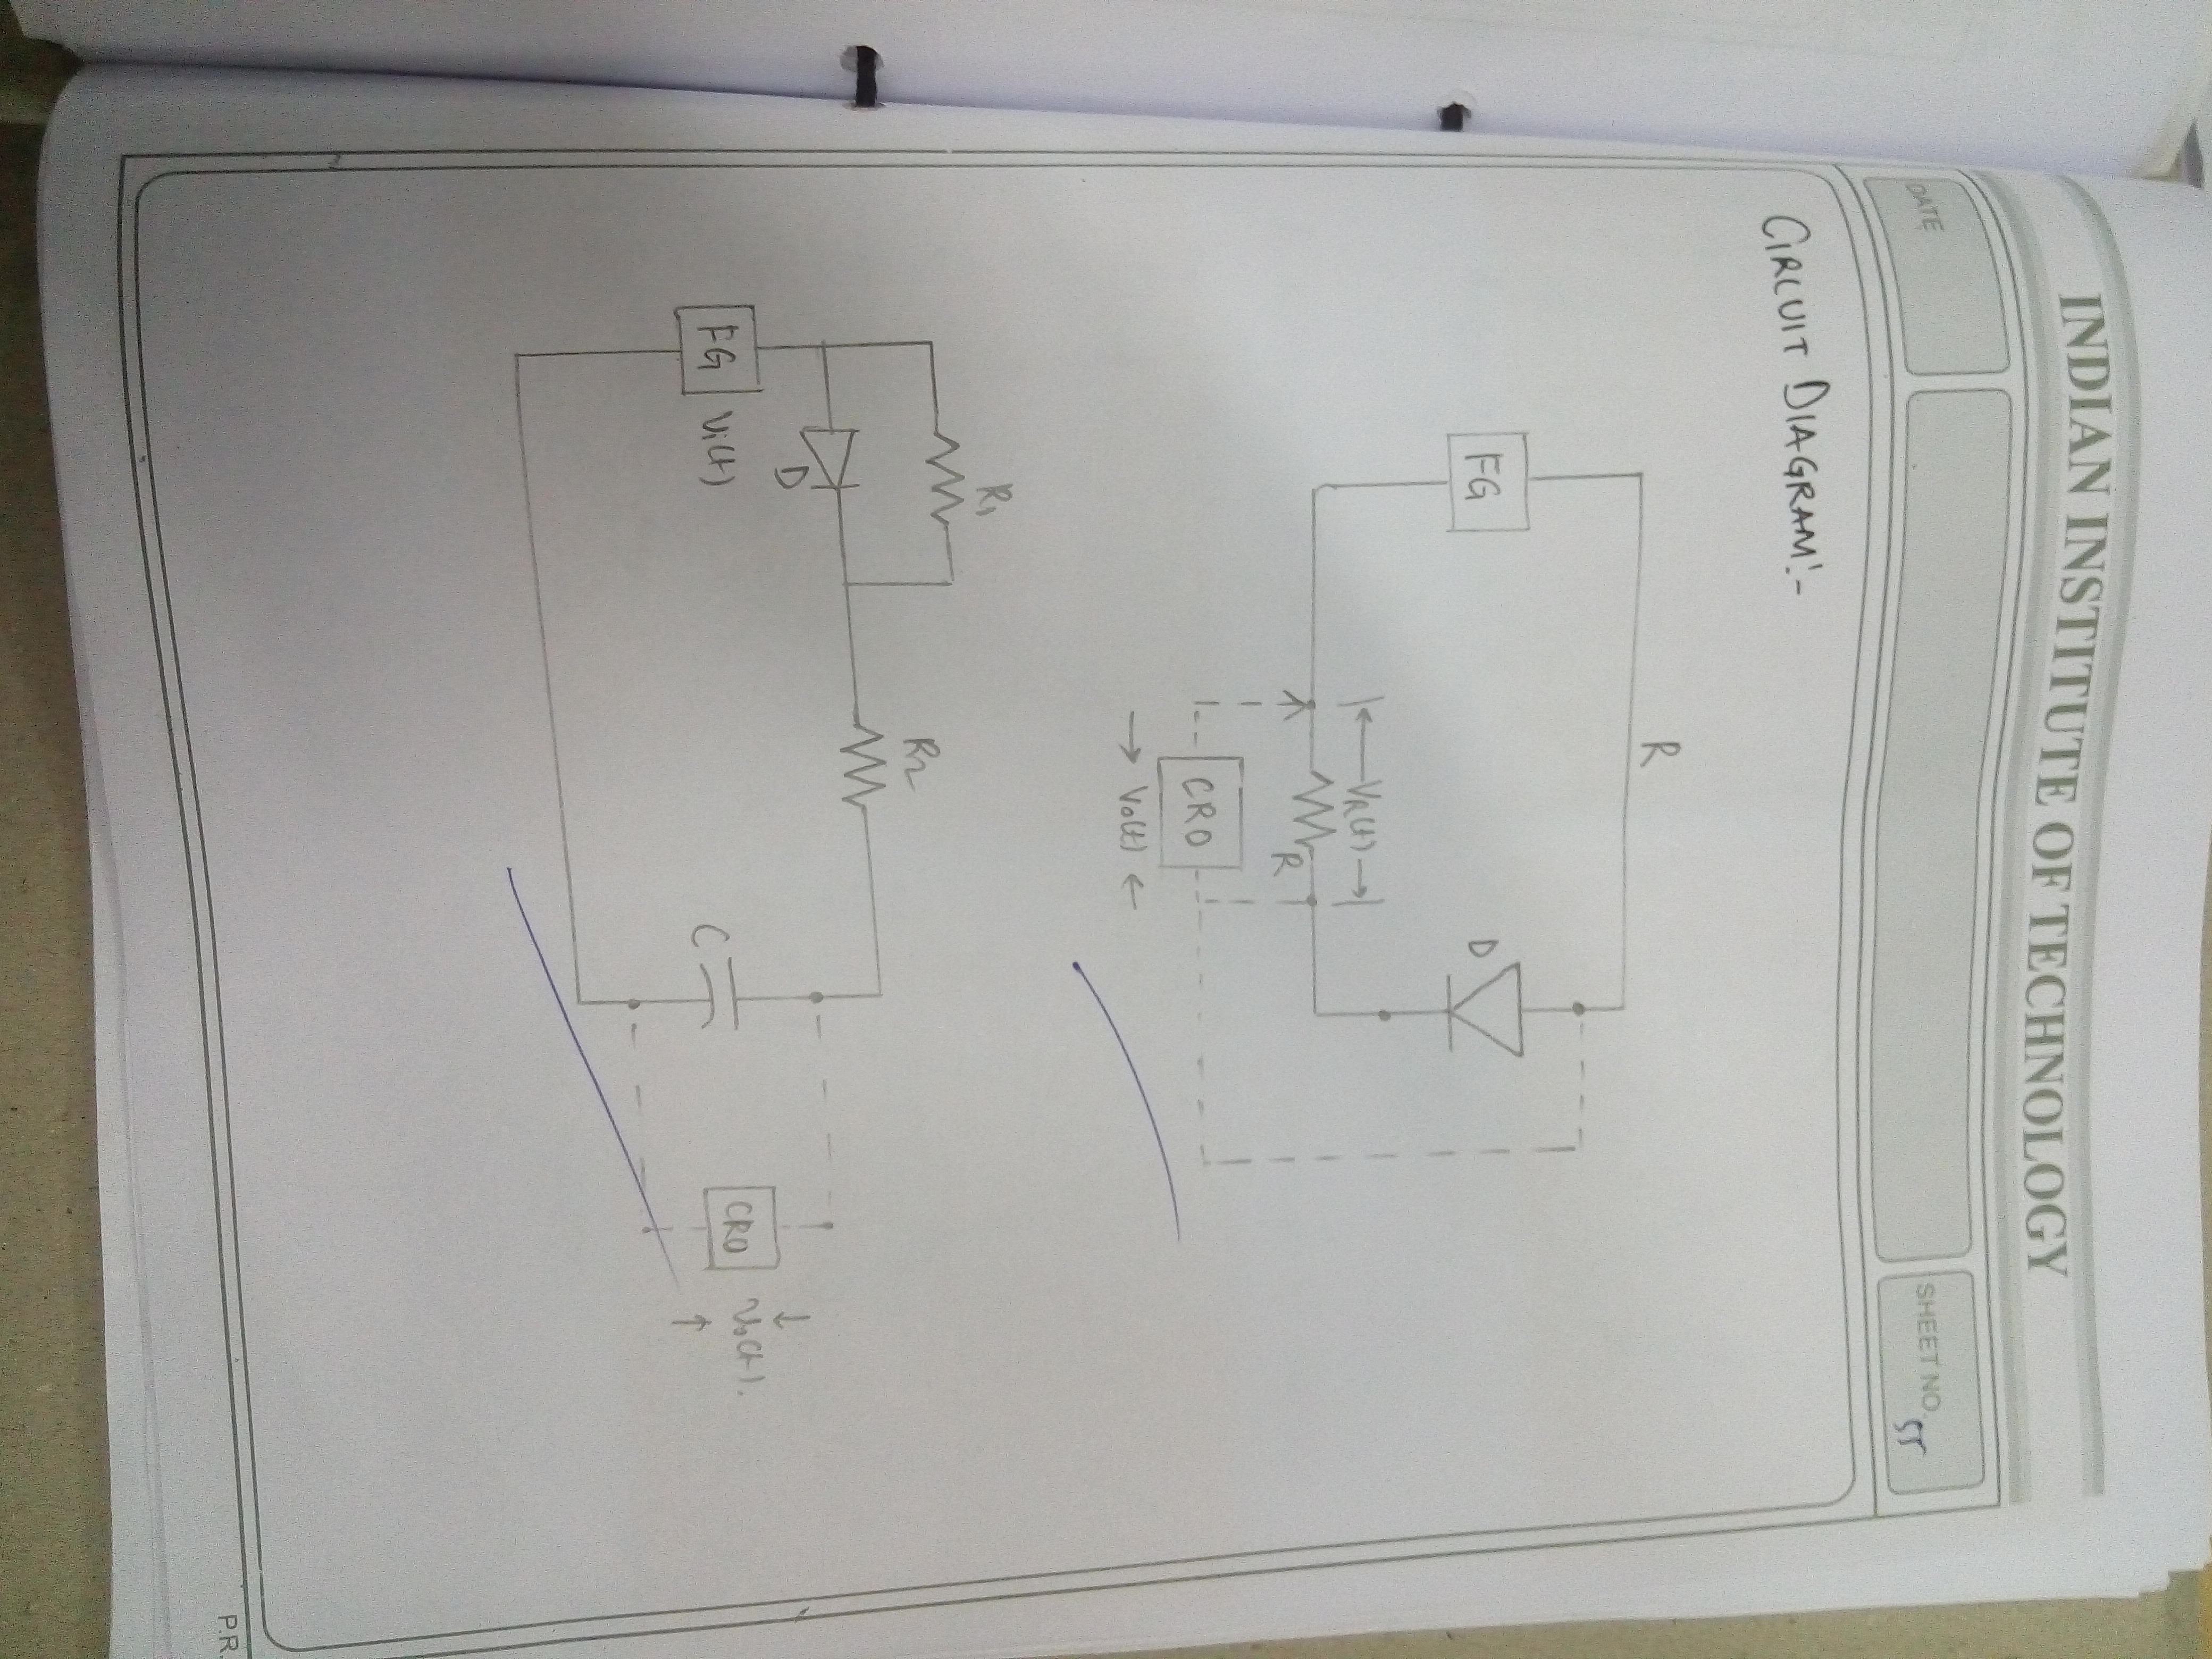 INDIAN INSTITUTE OF TECHNOLOGY
DATE
SHEET NO. 55
CIRCUIT DIAGRAM:-
R
FG
D
VR(t)
R
CRO
Vo(t)
R1
R2
D
FG Vi(t)
C
CRO Vo(t).
P.R.